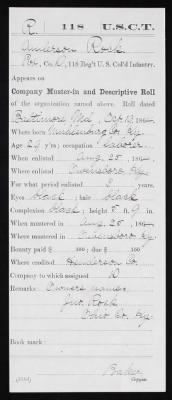 R. 118 U.S.C.T.
Anderson Rock
Co. D, 118 Reg't U. S. Col'd Infantry.
Appears on
Company Muster-in and Descriptive Roll
of the organization named above. Roll dated
Baltimore, Md., Oct. 186
Where born Muhlenburg Co. Ky.
Age 29 y'rs; occupation
When enlisted Aug. 25, 186
Where enlisted Owensboro Ky.
For what period enlisted 3 years.
Eyes black; hair black
Complexion black; height 5 ft. 9 in.
When mustered in Aug. 25, 186
Where mustered in Owensboro Ky.
Bounty paid $ 100; due $ 100
Where credited Henderson Co.
Company to which assigned D
Remarks: Owners name:
Jno. Rock
Ohio Co. Ky.
Book mark:
Baker
Copyist.